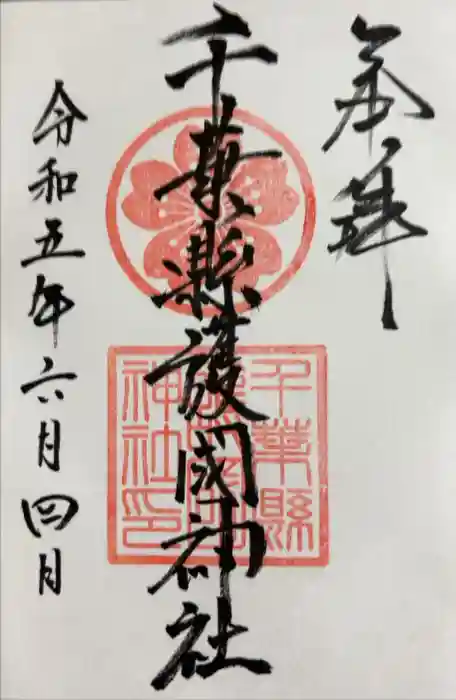 奉拝
千葉縣護國神社
令和五年六月四日
千葉縣
神社印